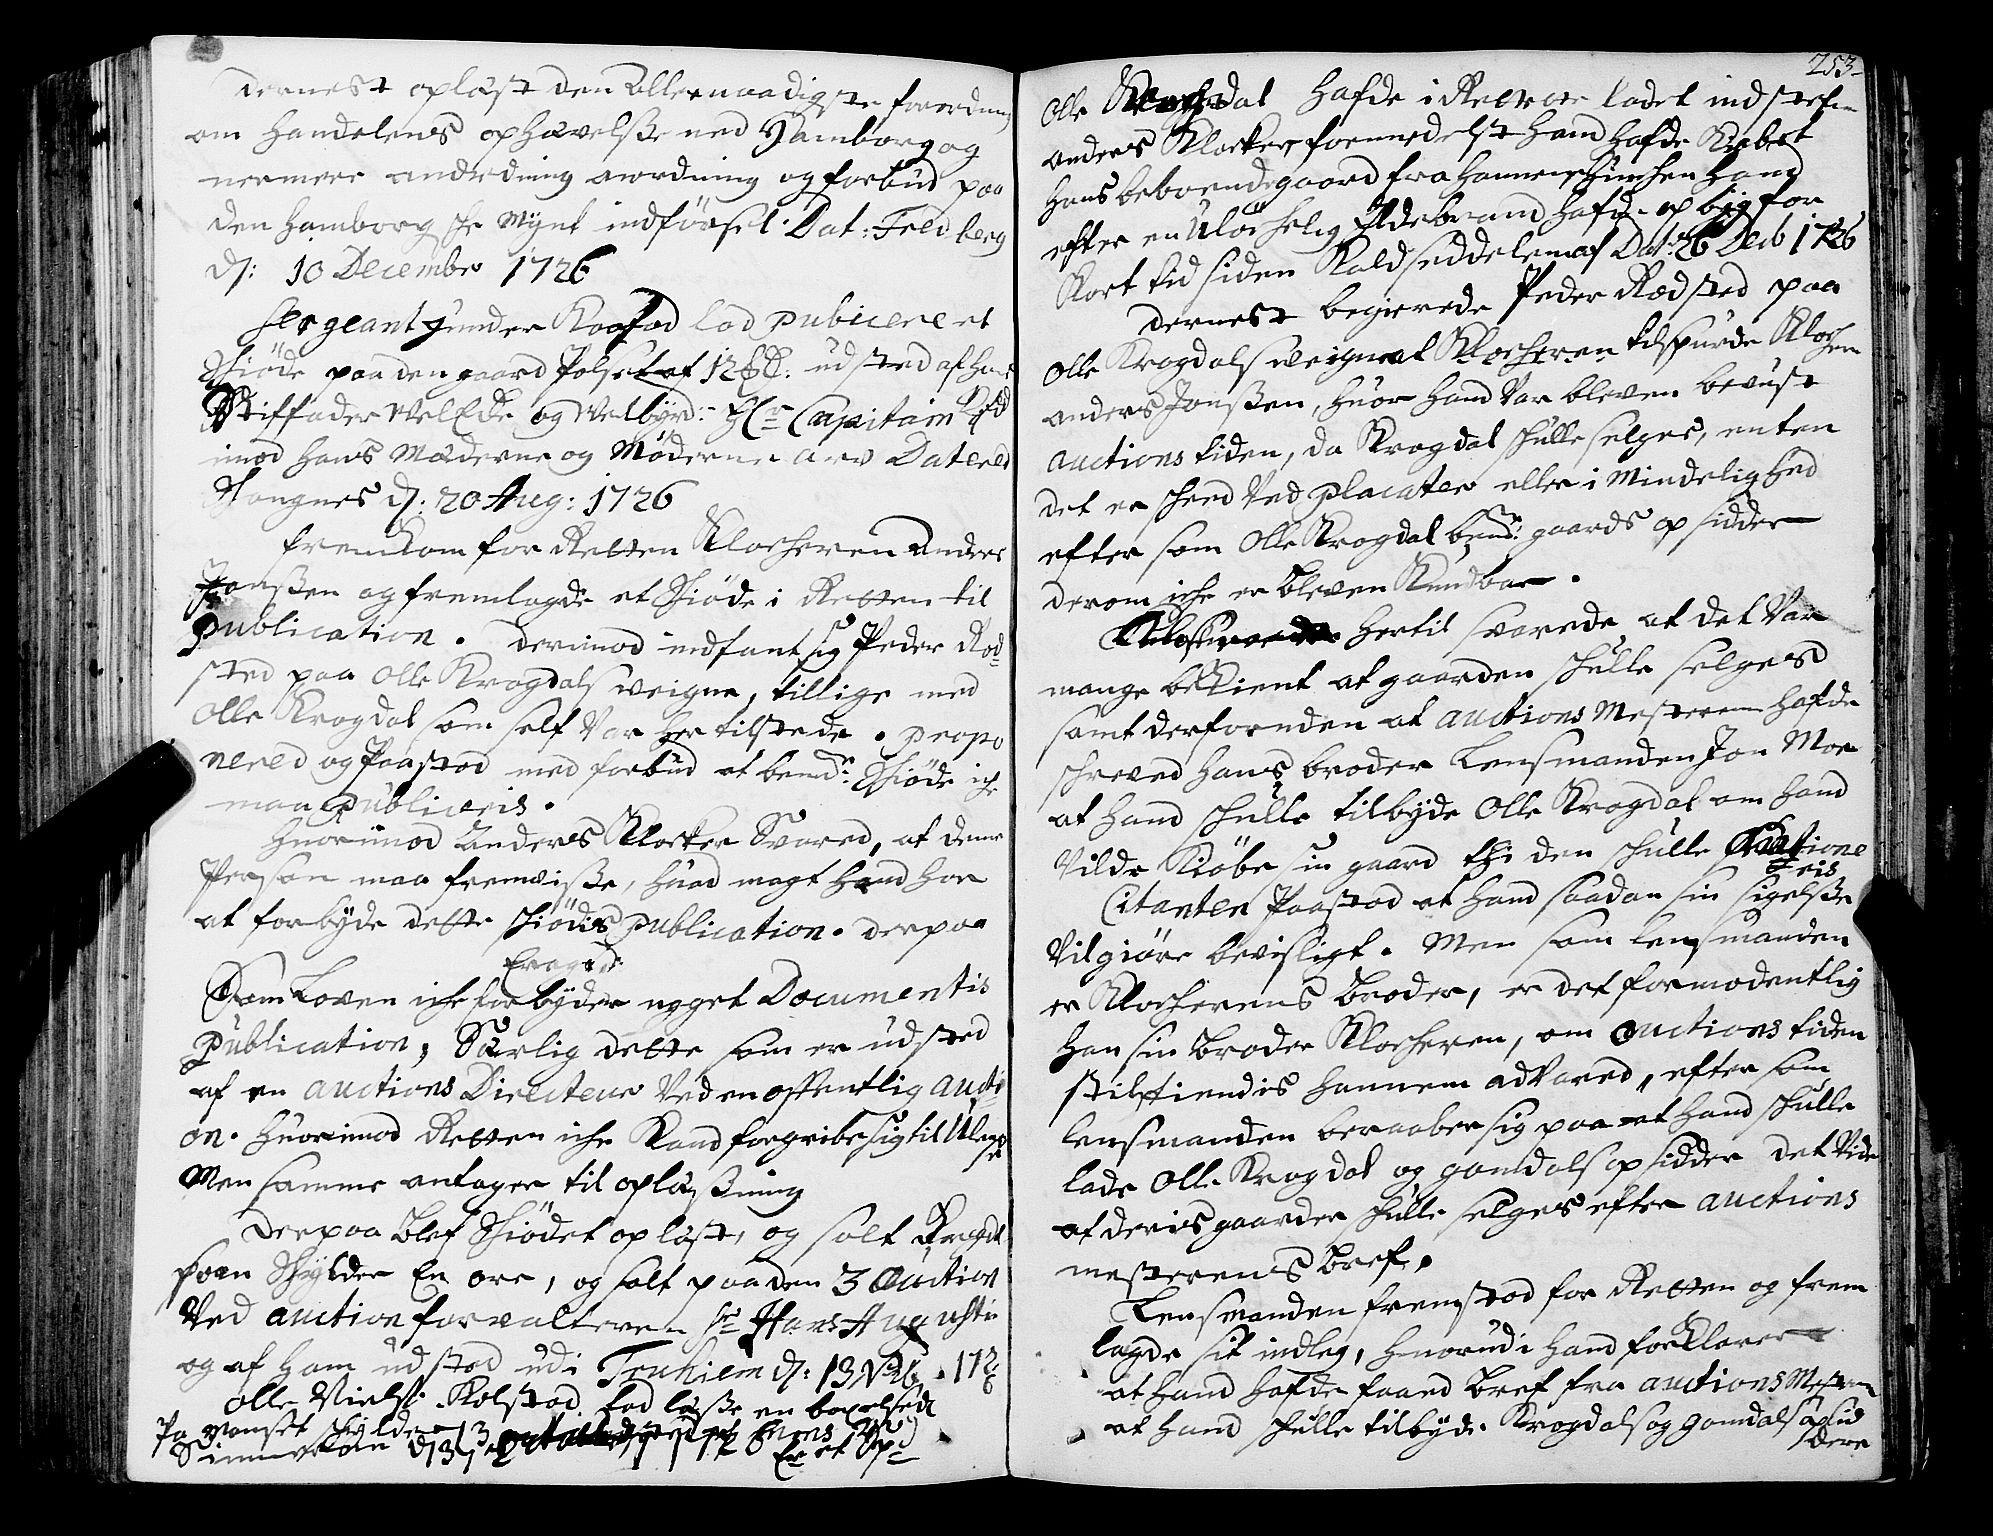 Dernest oplæst den Allernaadigste forordning
om Handelens ophævelsse med Hamborg og
nermere anordning og forbud paa
den hamborgsche Mynt indførsel. Dat: Fredberg
d: 10 December 1726
Sergeant Gunder lod publicere et
Schiøde paa den gaard af udsted af hans
Stiffader WelEdle og Welbyrd: Hr Capitain
imod hans Mæderne og Møderne arv Dateret
d: 20 Aug: 1726
fremkom for Retten Klocheren Anders
Jonssen og fremlagde et Schiøde i Retten til
Publication. Derimod indfant sig Peder Rød-
sted paa Olle Krogdals weigne, tillige med
Olle Krogdal som self var her tilstede. propo
nered og Paastod med forbud at bemte: Schiøde iche
maa publiceris.
Huorimod Anders Klocker Svared, at denne
Person maa fremvisse, huad magt hand har
at forbyde dette schiødis publication. Derpaa
Eragt:
Som Loven iche forbyder noget Documentis
Publication, Særlig dette som er udsted
af en auctions Directeur ved en offentlig aucti
on. Huorimod Retten iche Kand forgribe sig til
Men samme antager til oplæssning
Derpaa blef Schiødet oplæst, og solt Krogdal
som Schylder En øre, og solt paa den 3 Auction
ved auction forvalteren Sr Hans Augustin
og af ham udstod udi Truhiem d: 13 1726
Olle Nielss. Kolstad lod læsse en bøxelsedel
Pa schylder
d 3 1726 En

253
Olle Krogdal hafde i Rette ladet indstefne
anders Klocker formedelst hand hafde Kiøbt
hans beboende gaard fra hannem, huilchen hand
efter en Uløchelig Ildebrand hafde op bygt for
Kort tid siden Kaldseddelen af Dat: 26 Decb 1726
Dernest begierede Peder Rødsted paa
Olle Krogdals weigne at Klocheren tilspurde Kloch
anders Jonssen, huor hand var bleven bevust
auctions tiden, da Krogdal schulle selges, enten
det er scheed ved placater eller i Mindelighed
efter som Olle Krogdal bemte: gaards opsidder
derom iche er bleven Kundbar.
hertil svarede at det var
mange bekient at gaarden schulle selges
samt derforuden at auctions Mesteren hafde
schreved hans broder Lensmanden Jon Moe
at hand schulle tilbyde Olle Krogdal om hand
vilde Kiøbe sin gaard thi den schulle Auctione
ris
Citanten Paastod at hand saadan sin sigelsse
vil giøre bevisligt. Men som Lensmanden
er Klocherens broder, er det formodentlig
han sin broder Klocheren, om auctions tiden
stiltiendis hannem advared, efter som
lensmanden beraaber sig paa at hand schulle
lade Olle Krogdal og gomdals opsidder det vide
at deris gaarder schulle selges efter auctions
mesterens bref.
Lensmanden fremstod for Retten og frem
lagde sit indleg, huorudi hand forklarer
at hand hafde faaed bref fra auctions Mesteren
at hand schulle tilbyde Krogdals og gomdals opsid
dere